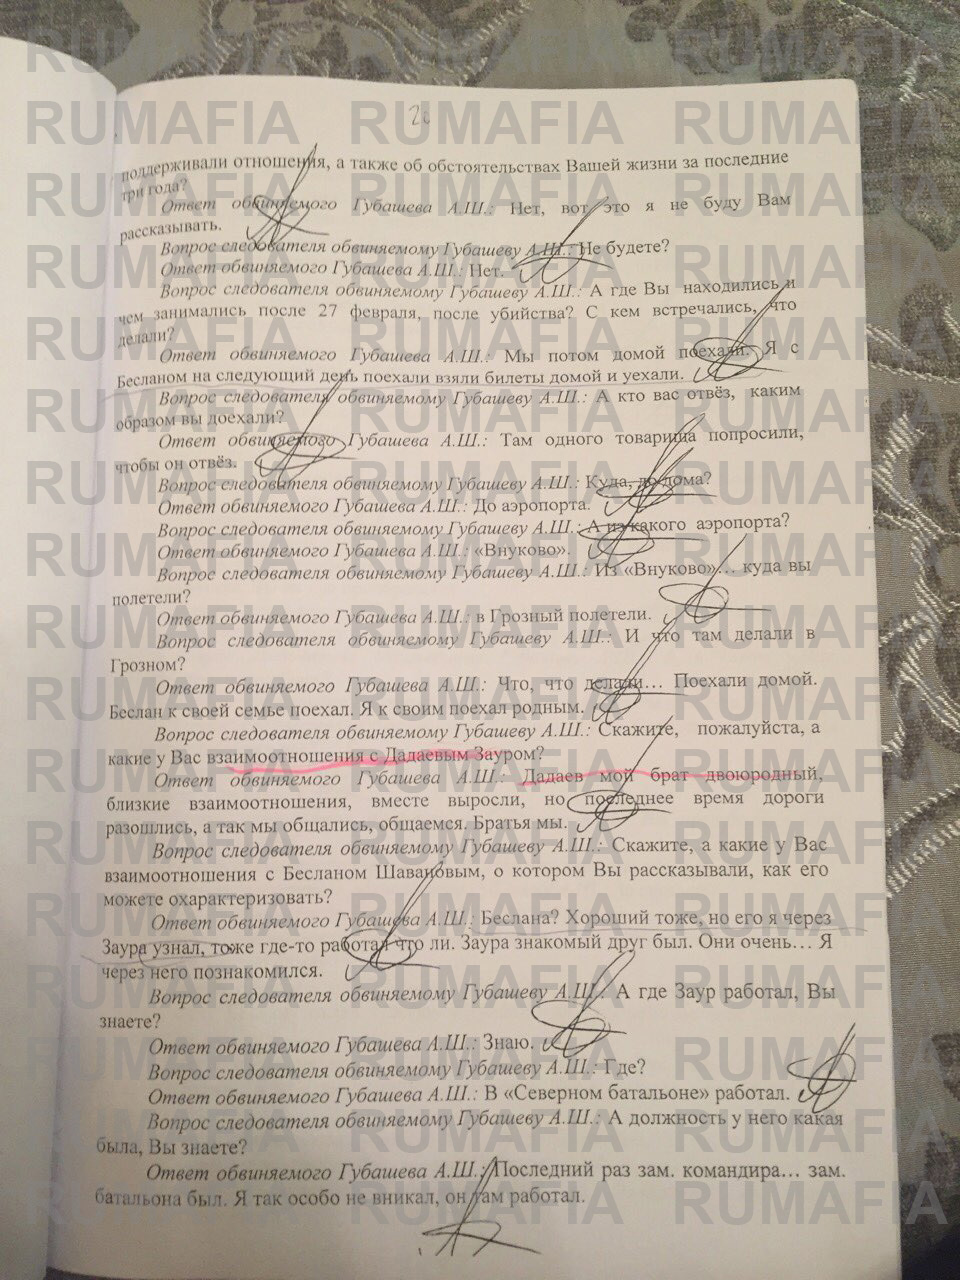 20
поддерживали отношения, а также об обстоятельствах Вашей жизни за последние
три года?
Ответ обвиняемого Губашева А.Ш.: Нет, вот это я не буду Вам
рассказывать.
Вопрос следователя обвиняемому Губашеву А.Ш.: Не будете?
Ответ обвиняемого Губашева А.Ш.: Нет.
Вопрос следователя обвиняемому Губашеву А.Ш.: А где Вы находились и
чем занимались после 27 февраля, после убийства? С кем встречались, что
делали?
Ответ обвиняемого Губашева А.Ш.: Мы потом домой поехали. Я с
Бесланом на следующий день поехали взяли билеты домой и уехали.
Вопрос следователя обвиняемому Губашеву А.Ш.: А кто вас отвёз, каким
образом вы доехали?
Ответ обвиняемого Губашева А.Ш.: Там одного товарища попросили,
чтобы он отвёз.
Вопрос следователя обвиняемому Губашеву А.Ш.: Куда, до дома?
Ответ обвиняемого Губашева А.Ш.: До аэропорта.
Вопрос следователя обвиняемому Губашеву А.Ш.: А из какого аэропорта?
Ответ обвиняемого Губашева А.Ш.: «Внуково».
Вопрос следователя обвиняемому Губашеву А.Ш.: Из «Внуково»… куда вы
полетели?
Ответ обвиняемого Губашева А.Ш.: в Грозный полетели.
Вопрос следователя обвиняемому Губашеву А.Ш.: И что там делали в
Грозном?
Ответ обвиняемого Губашева А.Ш.: Что, что делали… Поехали домой.
Беслан к своей семье поехал. Я к своим поехал родным.
Вопрос следователя обвиняемому Губашеву А.Ш.: Скажите, пожалуйста, а
какие у Вас взаимоотношения с Дадаевым Зауром?
Ответ обвиняемого Губашева А.Ш.: Дадаев мой брат двоюродный,
близкие взаимоотношения, вместе выросли, но последнее время дороги
разошлись, а так мы общались, общаемся. Братья мы.
Вопрос следователя обвиняемому Губашеву А.Ш.: Скажите, а какие у Вас
взаимоотношения с Бесланом Шавановым, о котором Вы рассказывали, как его
можете охарактеризовать?
Ответ обвиняемого Губашева А.Ш.: Беслана? Хороший тоже, но его я через
Заура узнал, тоже где-то работал что ли. Заура знакомый друг был. Они очень… Я
через него познакомился.
Вопрос следователя обвиняемому Губашеву А.Ш.: А где Заур работал, Вы
знаете?
Ответ обвиняемого Губашева А.Ш.: Знаю.
Вопрос следователя обвиняемому Губашеву А.Ш.: Где?
Ответ обвиняемого Губашева А.Ш.: В «Северном батальоне» работал.
Вопрос следователя обвиняемому Губашеву А.Ш.: А должность у него какая
была, Вы знаете?
Ответ обвиняемого Губашева А.Ш.: Последний раз зам. командира… зам.
батальона был. Я так особо не вникал, он там работал.
RUMAFIA